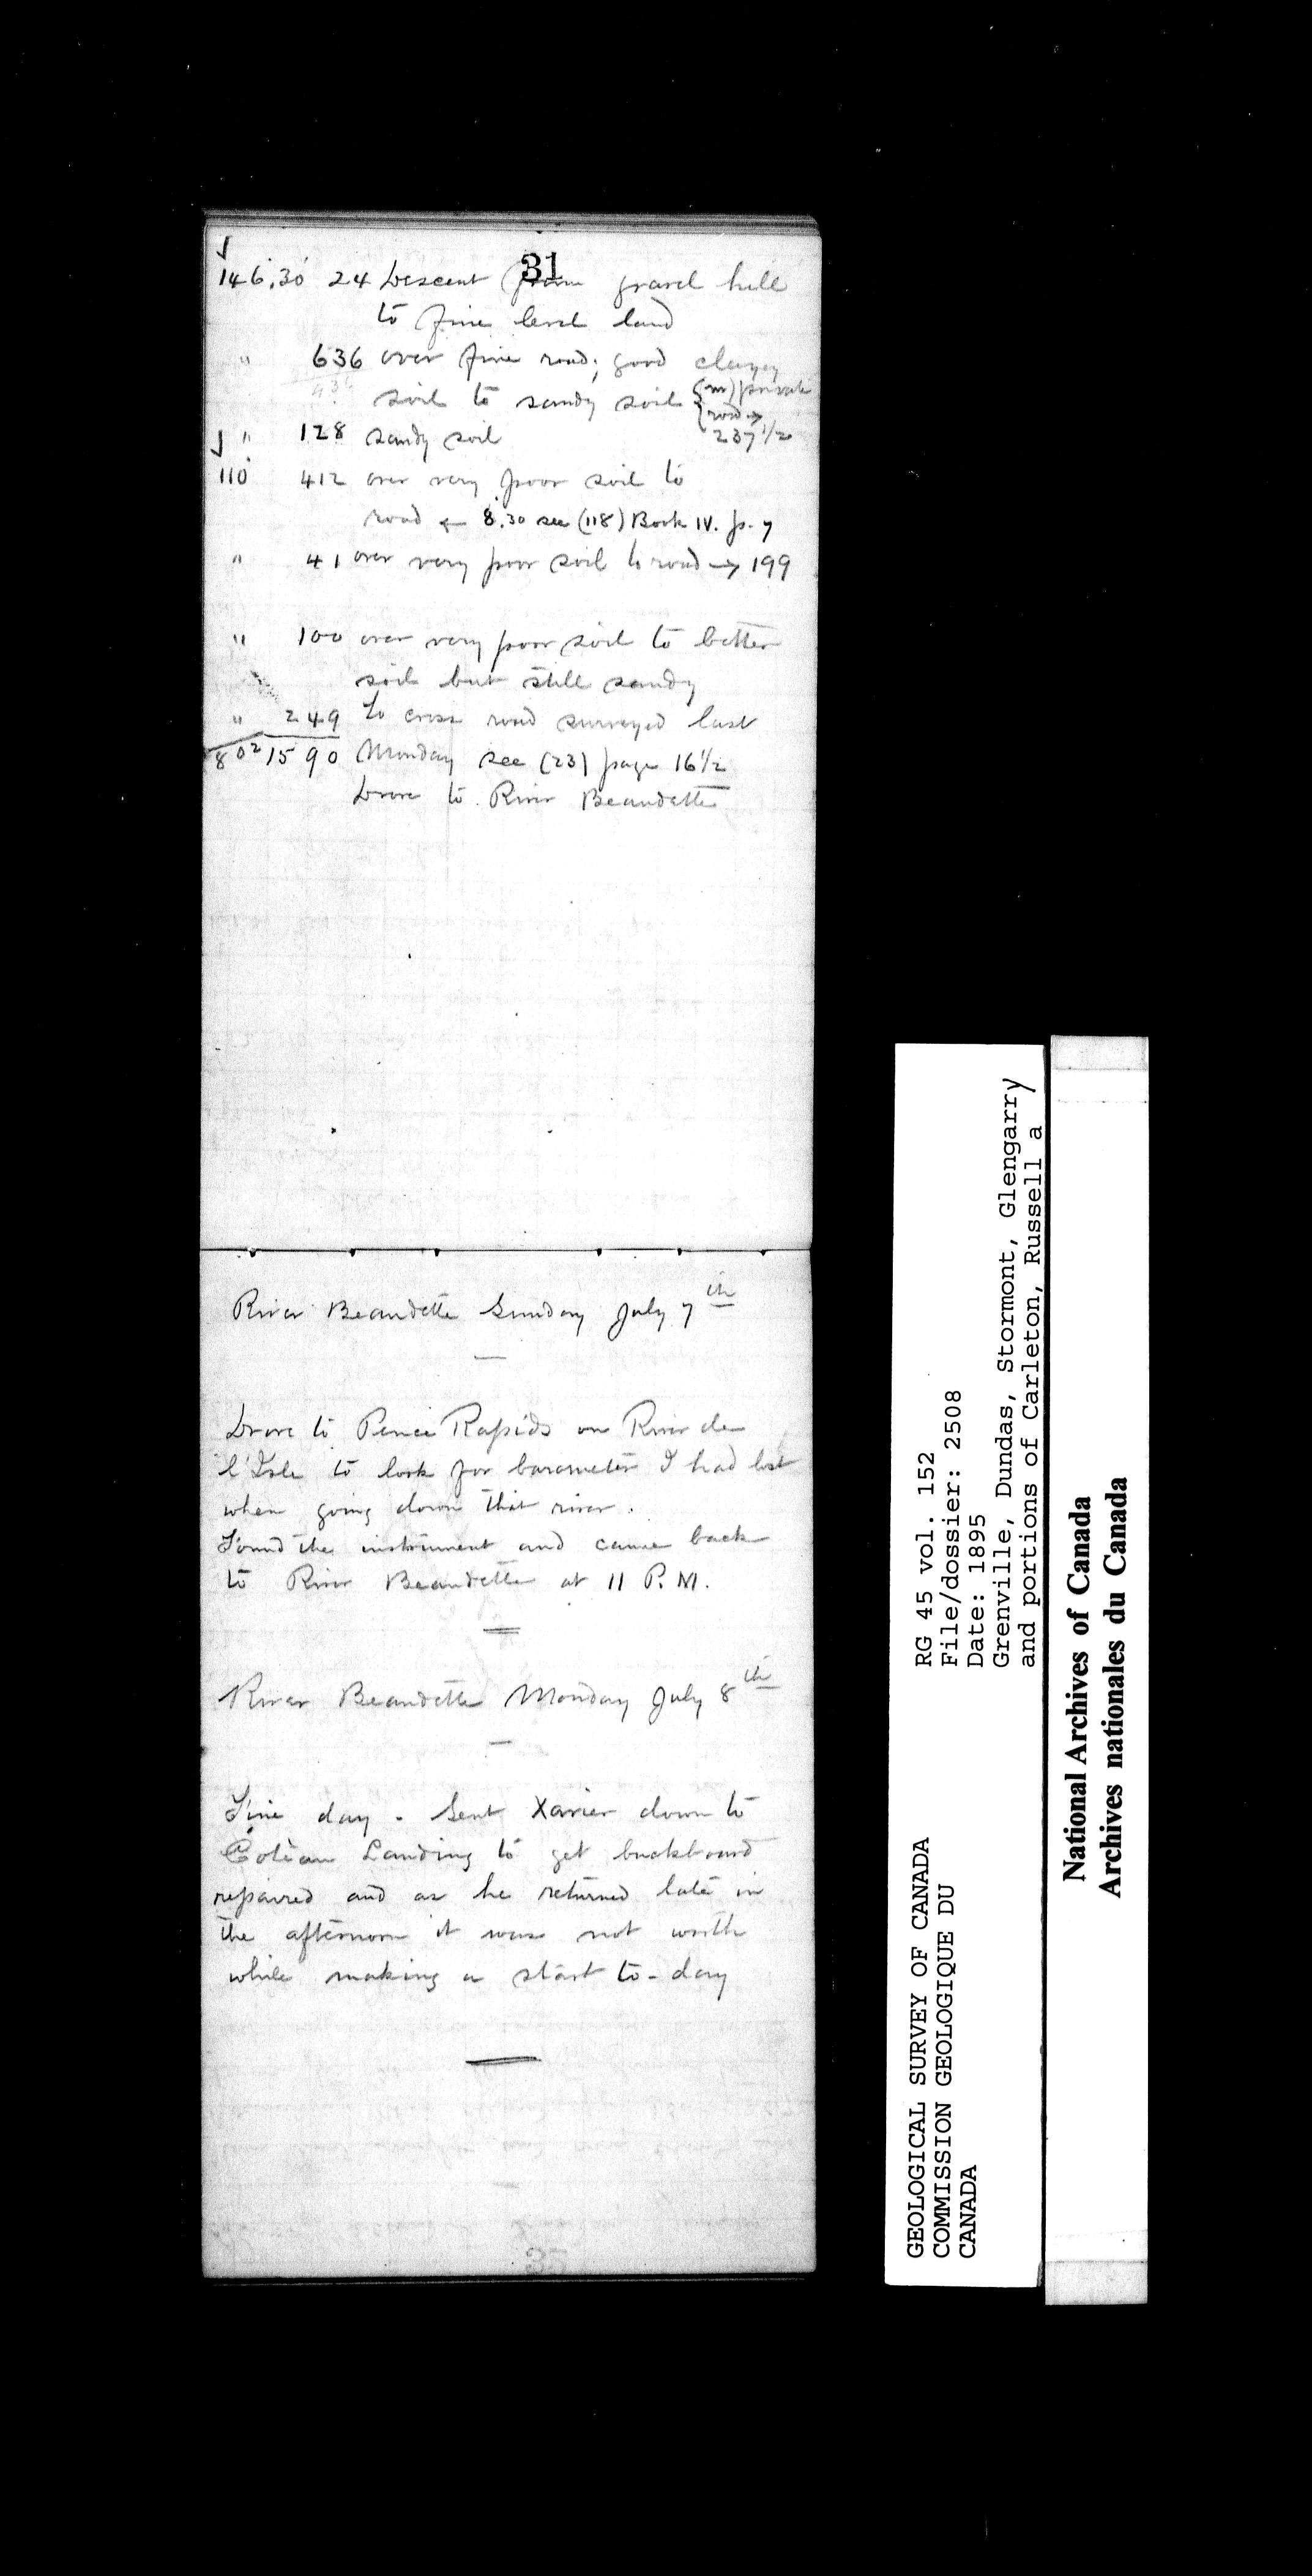 31
146.30 24 Descent from gravel hill
to fine level land
" 636 over fine road; good clayey
soil to sandy soil (m) private
road →
237 1/2
" 128 sandy soil
110 412 over very poor soil to
road ← 8.30 see (118) Book IV. p. 7
" 41 over very poor soil to road → 199
" 100 over very poor soil to better
soil but still sandy
" 249 to cross road surveyed last
802 1590 Monday see (23) page 16 1/2
Drove to River Beaudette
River Beaudette Sunday July 7th
Drove to Rapids on River de
l'Isle to look for barometer I had lost
when going down that river.
Found the instrument and came back
to River Beaudette at 11 P.M.
River Beaudette Monday July 8th
Fine day. Sent Xavier down to
Coteau Landing to get buckboard
repaired and as he returned late in
the afternoon it was not worth
while making a start to-day
GEOLOGICAL SURVEY OF CANADA
COMMISSION GEOLOGIQUE DU
CANADA
RG 45 vol. 152
File/dossier: 2508
Date: 1895
Grenville, Dundas, Stormont, Glengarry
and portions of Carleton, Russell a
y
National Archives of Canada
Archives nationales du Canada